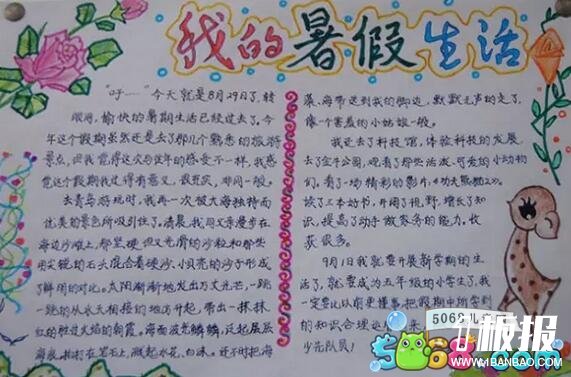 我的暑假生活
"吁——"今天就是8月29日了,转
眼间,愉快的暑期生活已经过去了,今
年这个假期虽然还是去了那几个熟悉的旅游
景点,但我觉得这次与往年的感受不一样,我感
觉这个假期我过得有意义,很充实,非同一般。
去青岛游玩时,我再一次被大海独特而
优美的景色所吸引住了。清晨,我同父亲漫步在
海边沙滩上,那坚硬但又光滑的沙粒和那些
用尖锐的石头混合着硬沙、小贝壳的沙子形成
了鲜明的对比。太阳渐渐地发出万丈光芒,一跳
一跳的从水天相接的地方升起,带出一抹抹
红的胜过火焰的朝霞,海面波光粼粼,泛起层层
海浪,拍打在岩石上,溅起水花、白沫。还不时把海
藻、海带送到我的脚边,默默无声的走了,
像个害羞的小姑娘一般。
我还去了科技馆,体验科技的发展
去了金牛公园,观看了那些活泼、可爱的小动物
们。看了一场精彩的影片,《功夫熊猫2》。
读了三本好书,开阔了视野,增长了知
识,提高了动手做家务的能力。收
获很多。
9月1日我就要开展新学期的生
活了,就要成为五年级的小学生了,我
一定要比以前更懂事,把假期中所学到
的知识合理运 来
少先队员!
5068儿
5068.com
板报
WWW.1BANBAO.COM